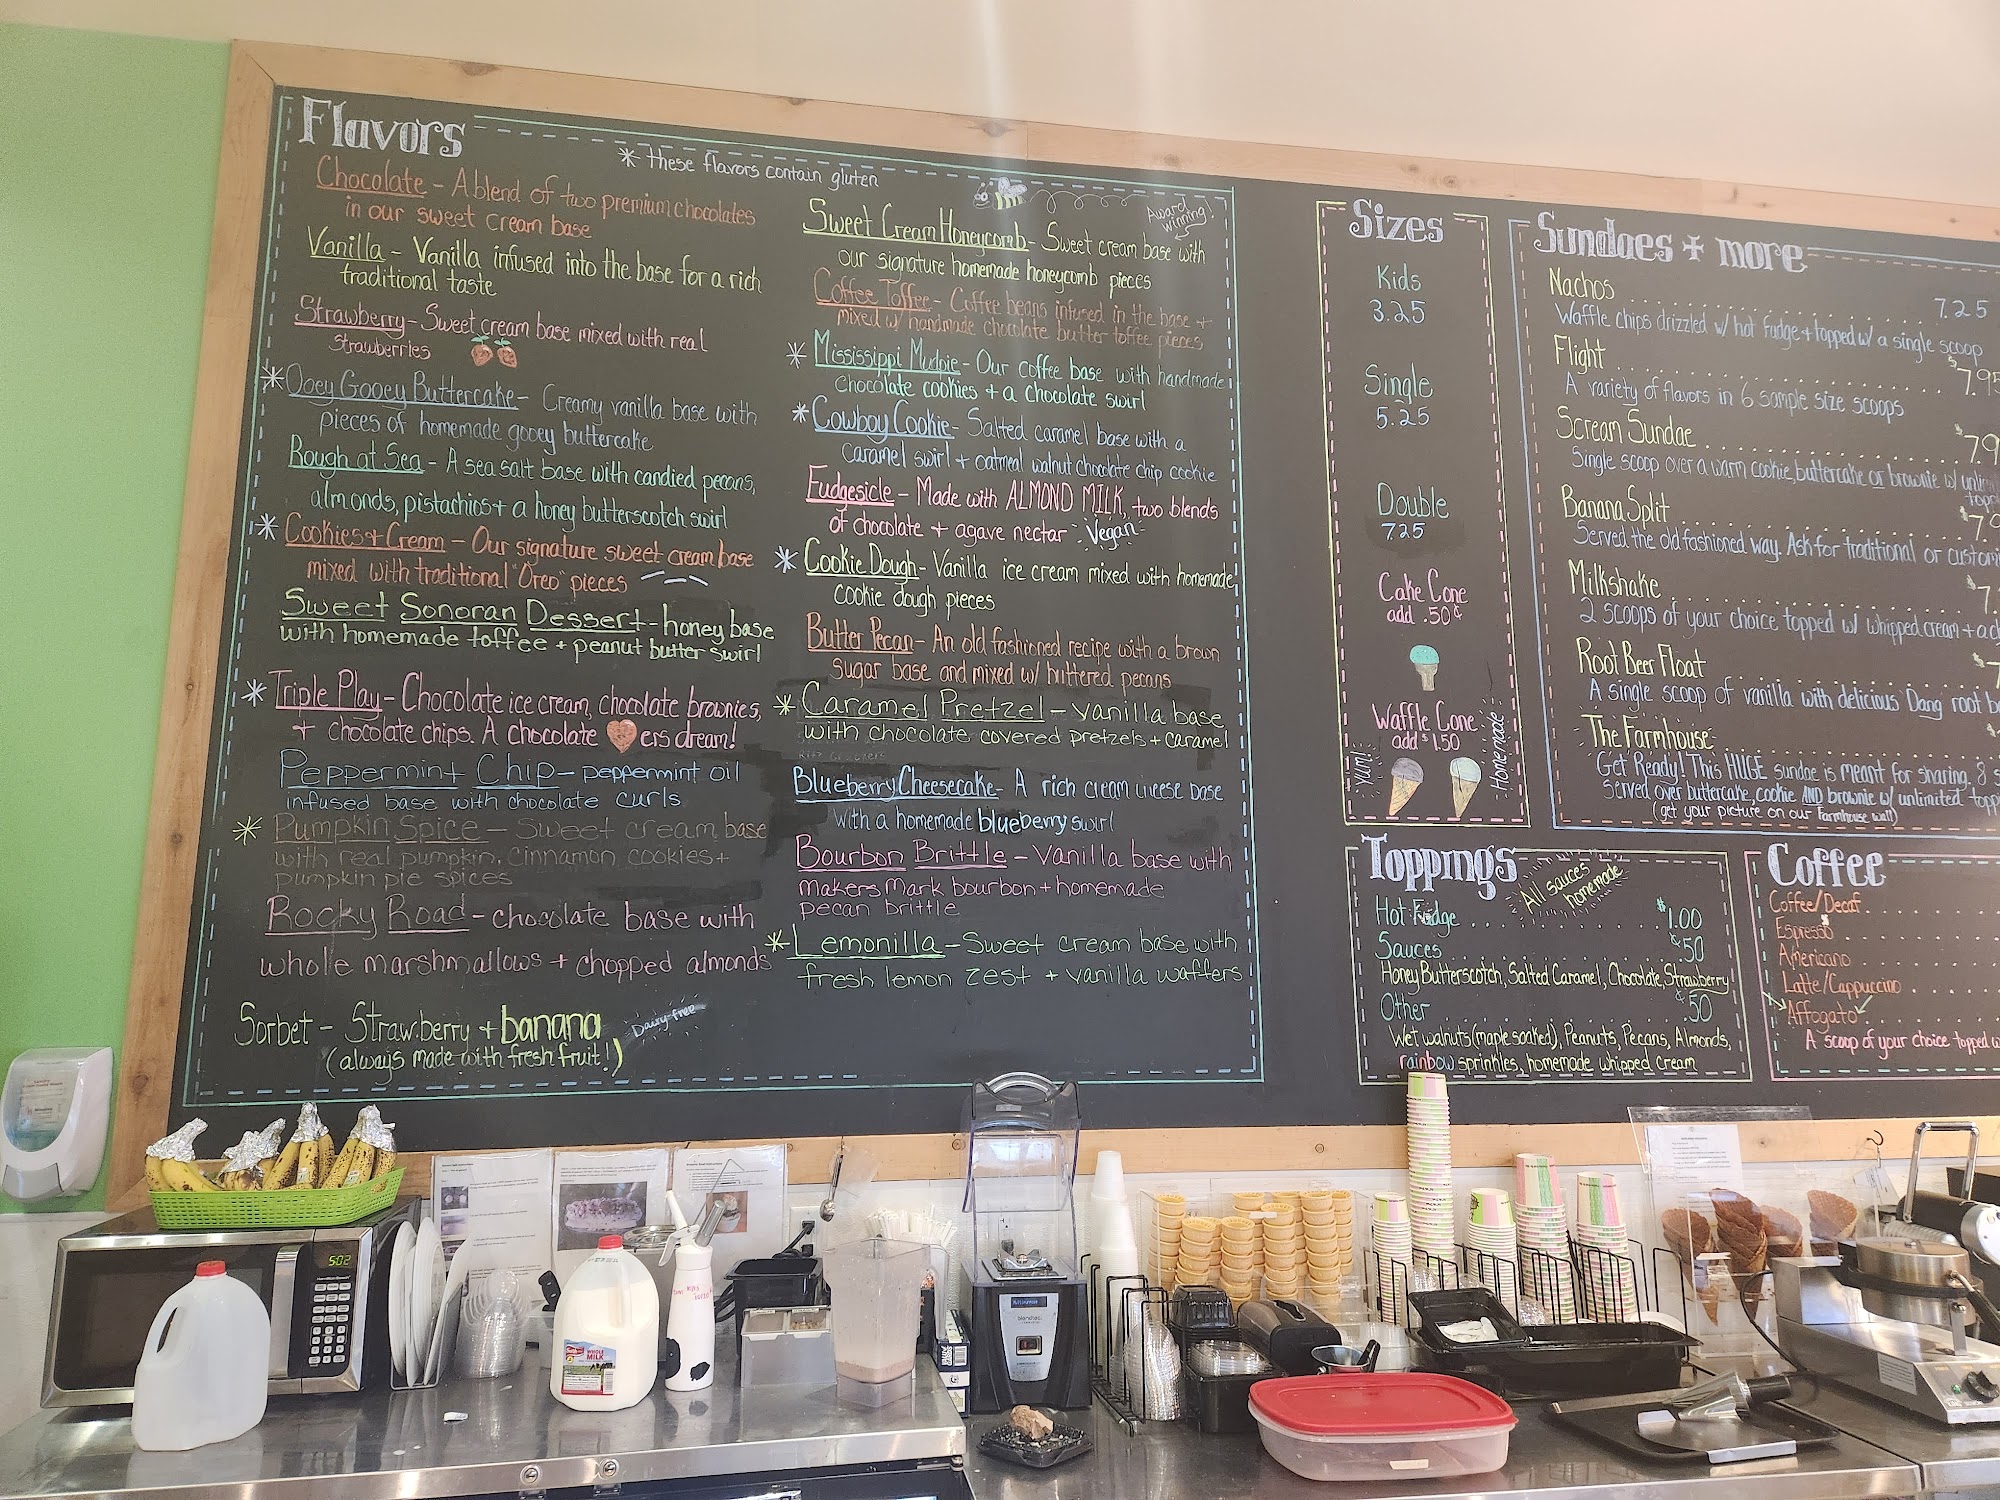 Flavors
* these flavors contain gluten
Chocolate - A blend of two premium chocolates
in our sweet cream base
Vanilla - Vanilla infused into the base for a rich
traditional taste
Strawberry - Sweet cream base mixed with real
strawberries
* Ooey Gooey Buttercake - Creamy vanilla base with
pieces of homemade gooey buttercake
Rough at Sea - A sea salt base with candied pecans,
almonds, pistachios + a honey butterscotch swirl
* Cookies + Cream - Our signature sweet cream base
mixed with traditional "Oreo" pieces
Sweet Sonoran Dessert - honey base
with homemade toffee + peanut butter swirl
* Triple Play - Chocolate ice cream, chocolate brownies,
+ chocolate chips. A chocolate ers dream!
Peppermint Chip - peppermint oil
infused base with chocolate curls
* Pumpkin Spice - Sweet cream base
with real pumpkin, cinnamon cookies +
pumpkin pie spices
Rocky Road - chocolate base with
whole marshmallows + chopped almonds
Sorbet - Strawberry + banana
(always made with fresh fruit!)
Dairy-free
Award
winning!
Sweet Cream Honeycomb - Sweet cream base with
our signature homemade honeycomb pieces
Coffee Toffee - Coffee beans infused in the base +
mixed w/ handmade chocolate butter toffee pieces
* Mississippi Mudpie - Our coffee base with handmade
chocolate cookies + a chocolate swirl
* Cowboy Cookie - Salted caramel base with a
caramel swirl + oatmeal walnut chocolate chip cookie
Fudgesicle - Made with ALMOND MILK, two blends
of chocolate + agave nectar Vegan
* Cookie Dough - Vanilla ice cream mixed with homemade
cookie dough pieces
Butter Pecan - An old fashioned recipe with a brown
sugar base and mixed w/ buttered pecans
* Caramel Pretzel - vanilla base
with chocolate covered pretzels + caramel
Blueberry Cheesecake - A rich cream cheese base
with a homemade blueberry swirl
Bourbon Brittle - Vanilla base with
makers mark bourbon + homemade
pecan brittle
* Lemonilla - Sweet cream base with
fresh lemon zest + vanilla waffers
Sizes
Kids
3.25
Single
5.25
Double
7.25
Cake Cone
add .50¢
Waffle Cone
add $1.50
Yum!
Homemade
Sundaes + more
Nachos 7.25
Waffle chips drizzled w/ hot fudge + topped w/ a single scoop
Flight $7.95
A variety of flavors in 6 sample size scoops
Scream Sundae $7.9
Single scoop over a warm cookie, buttercake or brownie w/
Banana Split $7.9
Served the old fashioned way. Ask for traditional or
Milkshake $7.
2 scoops of your choice topped w/ whipped cream + a
Root Beer Float $7
A single scoop of vanilla with delicious Dang root
The Farmhouse
Get Ready! This HUGE sundae is meant for sharing. 8
served over buttercake, cookie AND brownie w/ unlimited
(get your picture on our Farmhouse wall)
Toppings
All sauces
homemade
Hot Fudge $1.00
Sauces ¢50
Honey Butterscotch, Salted Caramel, Chocolate, Strawberry
Other ¢50
Wet walnuts (maple soaked), Peanuts, Pecans, Almonds,
rainbow sprinkles, homemade whipped cream
Coffee
Coffee/Decaf
Espresso
Americano
Latte/Cappuccino
Affogato
A scoop of your choice topped
5:02
WHOLE
MILK